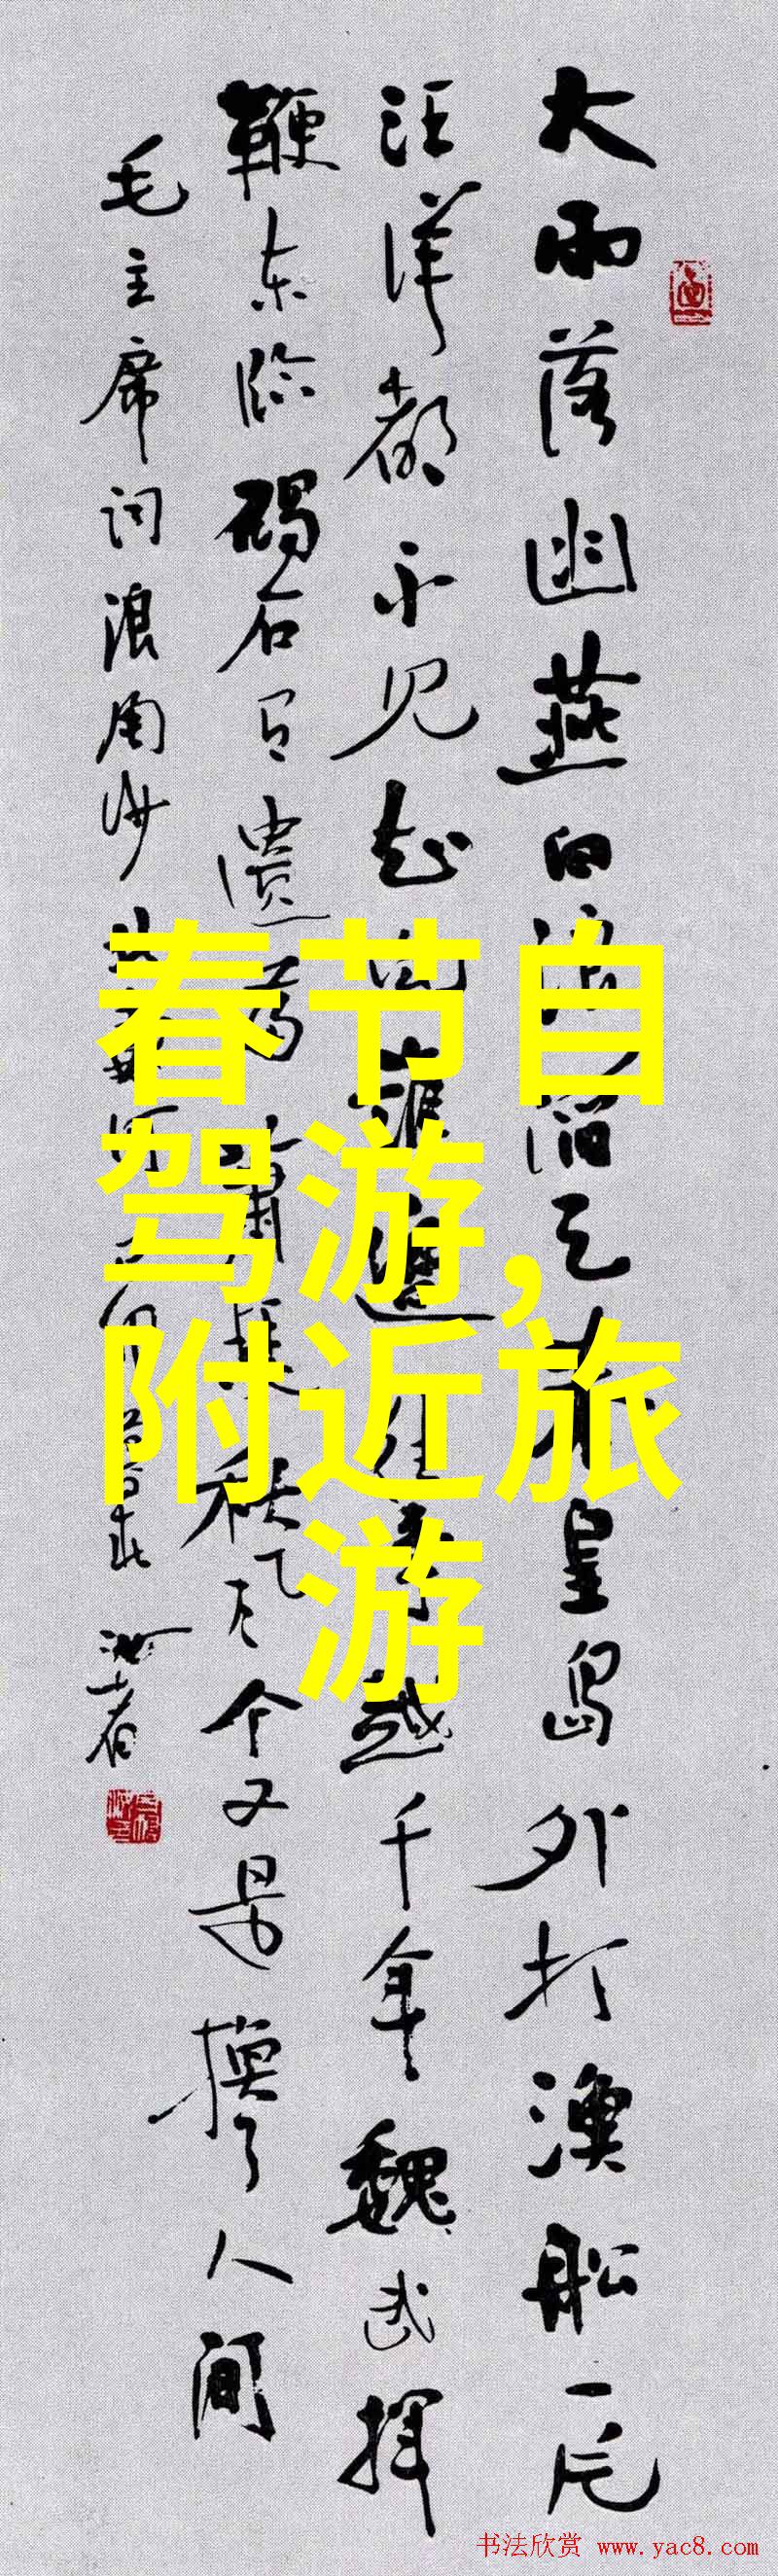 大雨落幽燕白浪滔天秦皇岛外打漁船一片
汪洋都不见知向誰邊往事越千年魏武挥
鞭东临碣石有遗篇萧瑟秋风今又是换了人间
毛主席词浪淘沙北戴河
春节自
驾游,
附近旅
游
书法欣赏 www.yac8.com